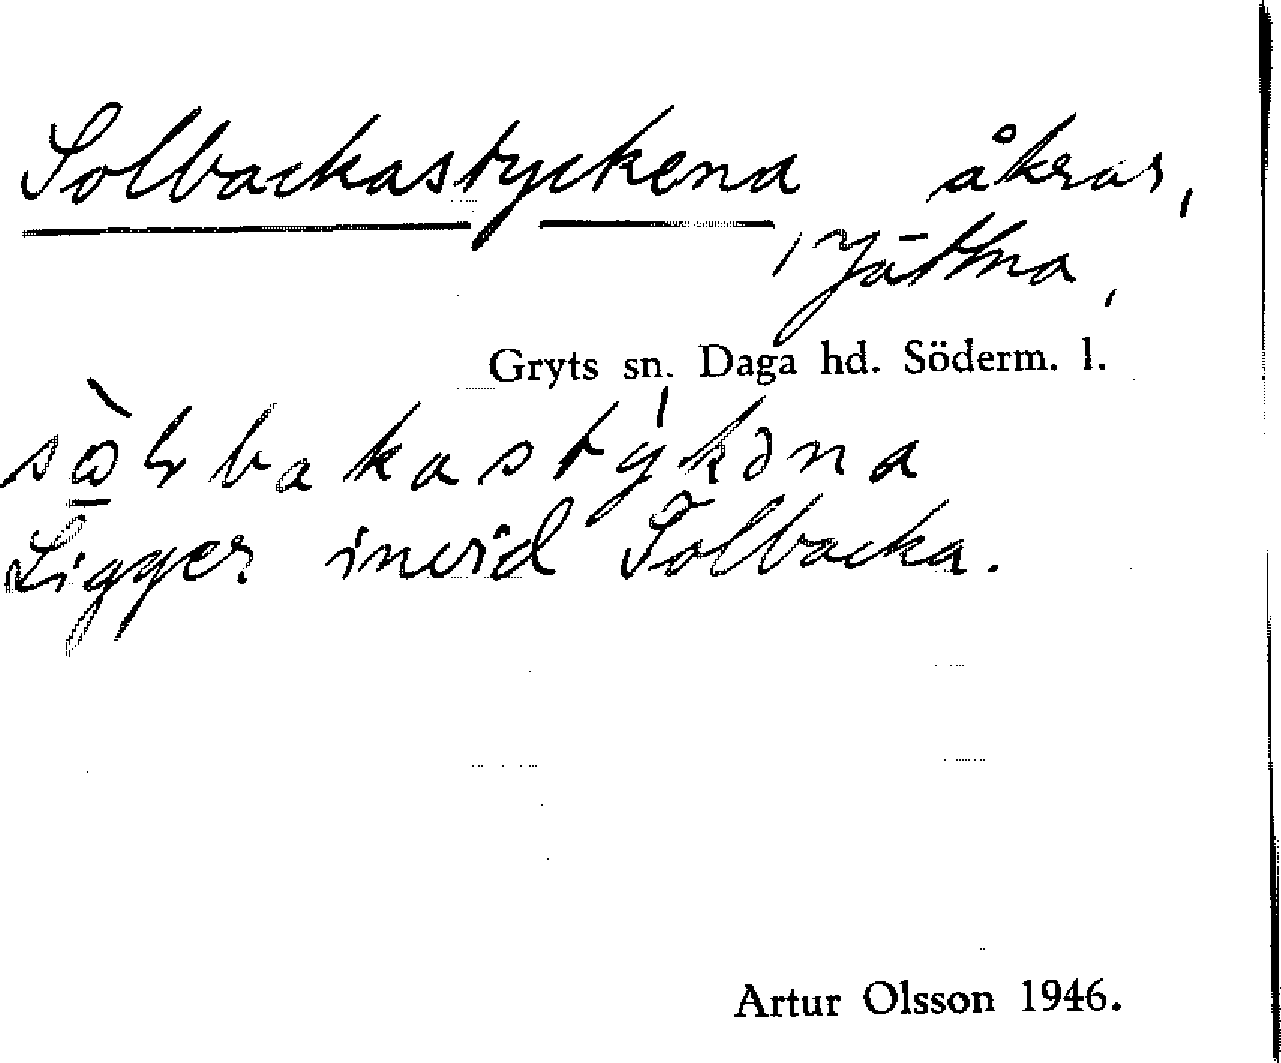 Solbackastyckena åkrar,
, Jättna,
Gryts sn. Daga hd. Söderm. l.
Ligger invid Solbacka.
Artur Olsson 1946.